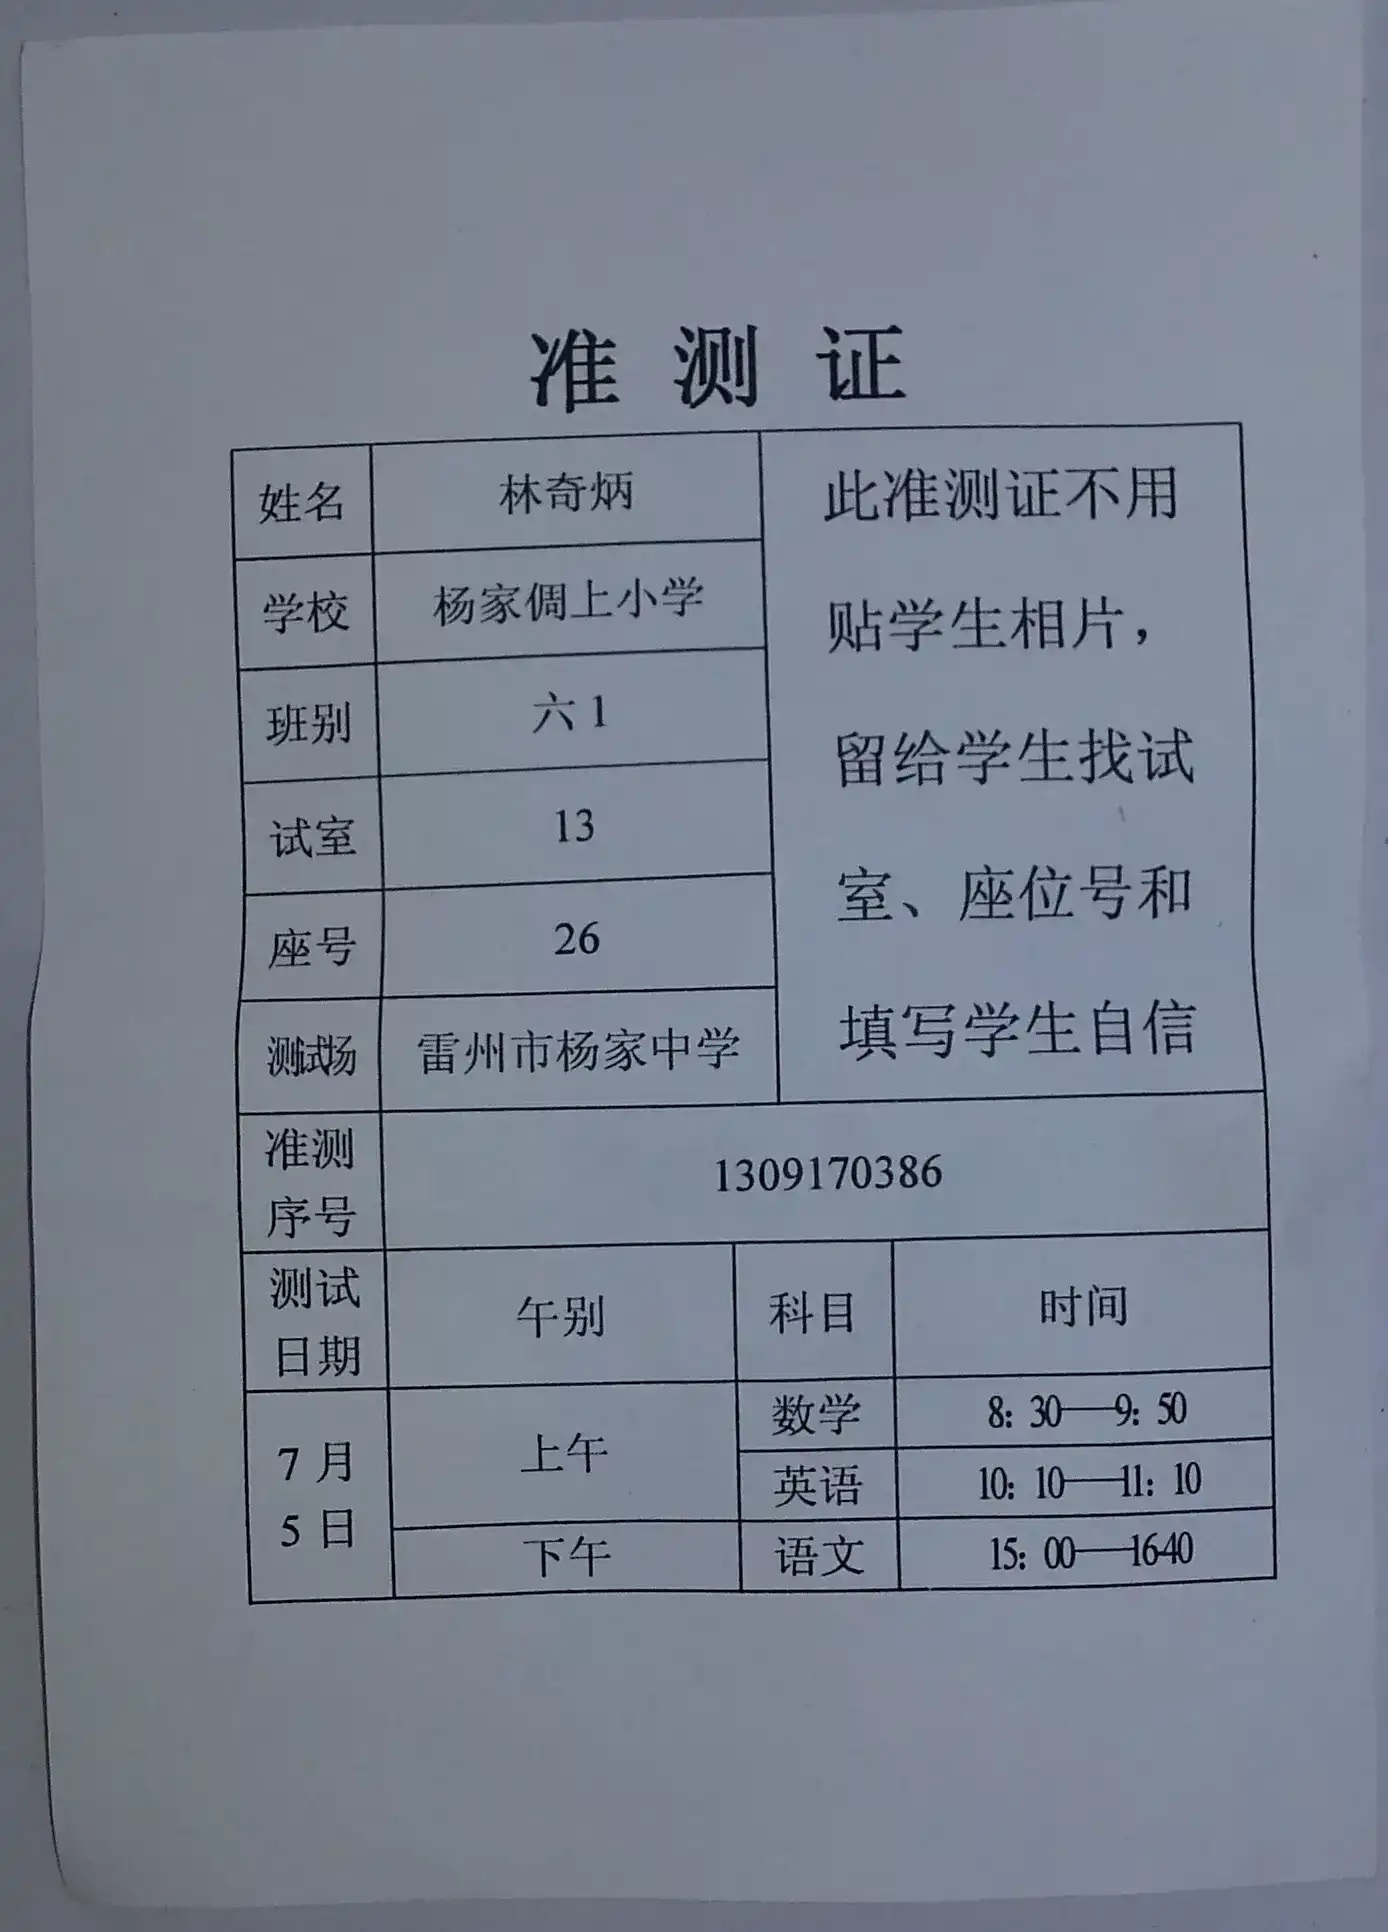 准 测 证
姓名 林奇炳
学校 杨家倜上小学
班别 六 1
试室 13
座号 26
测试场 雷州市杨家中学
此准测证不用
贴学生相片，
留给学生找试
室、座位号和
填写学生自信
准测
序号
1309170386
测试
日期
午别 科目 时间
7 月
5 日
上午
数学 8：30——9：50
英语 10：10——11：10
下午 语文 15：00——1640